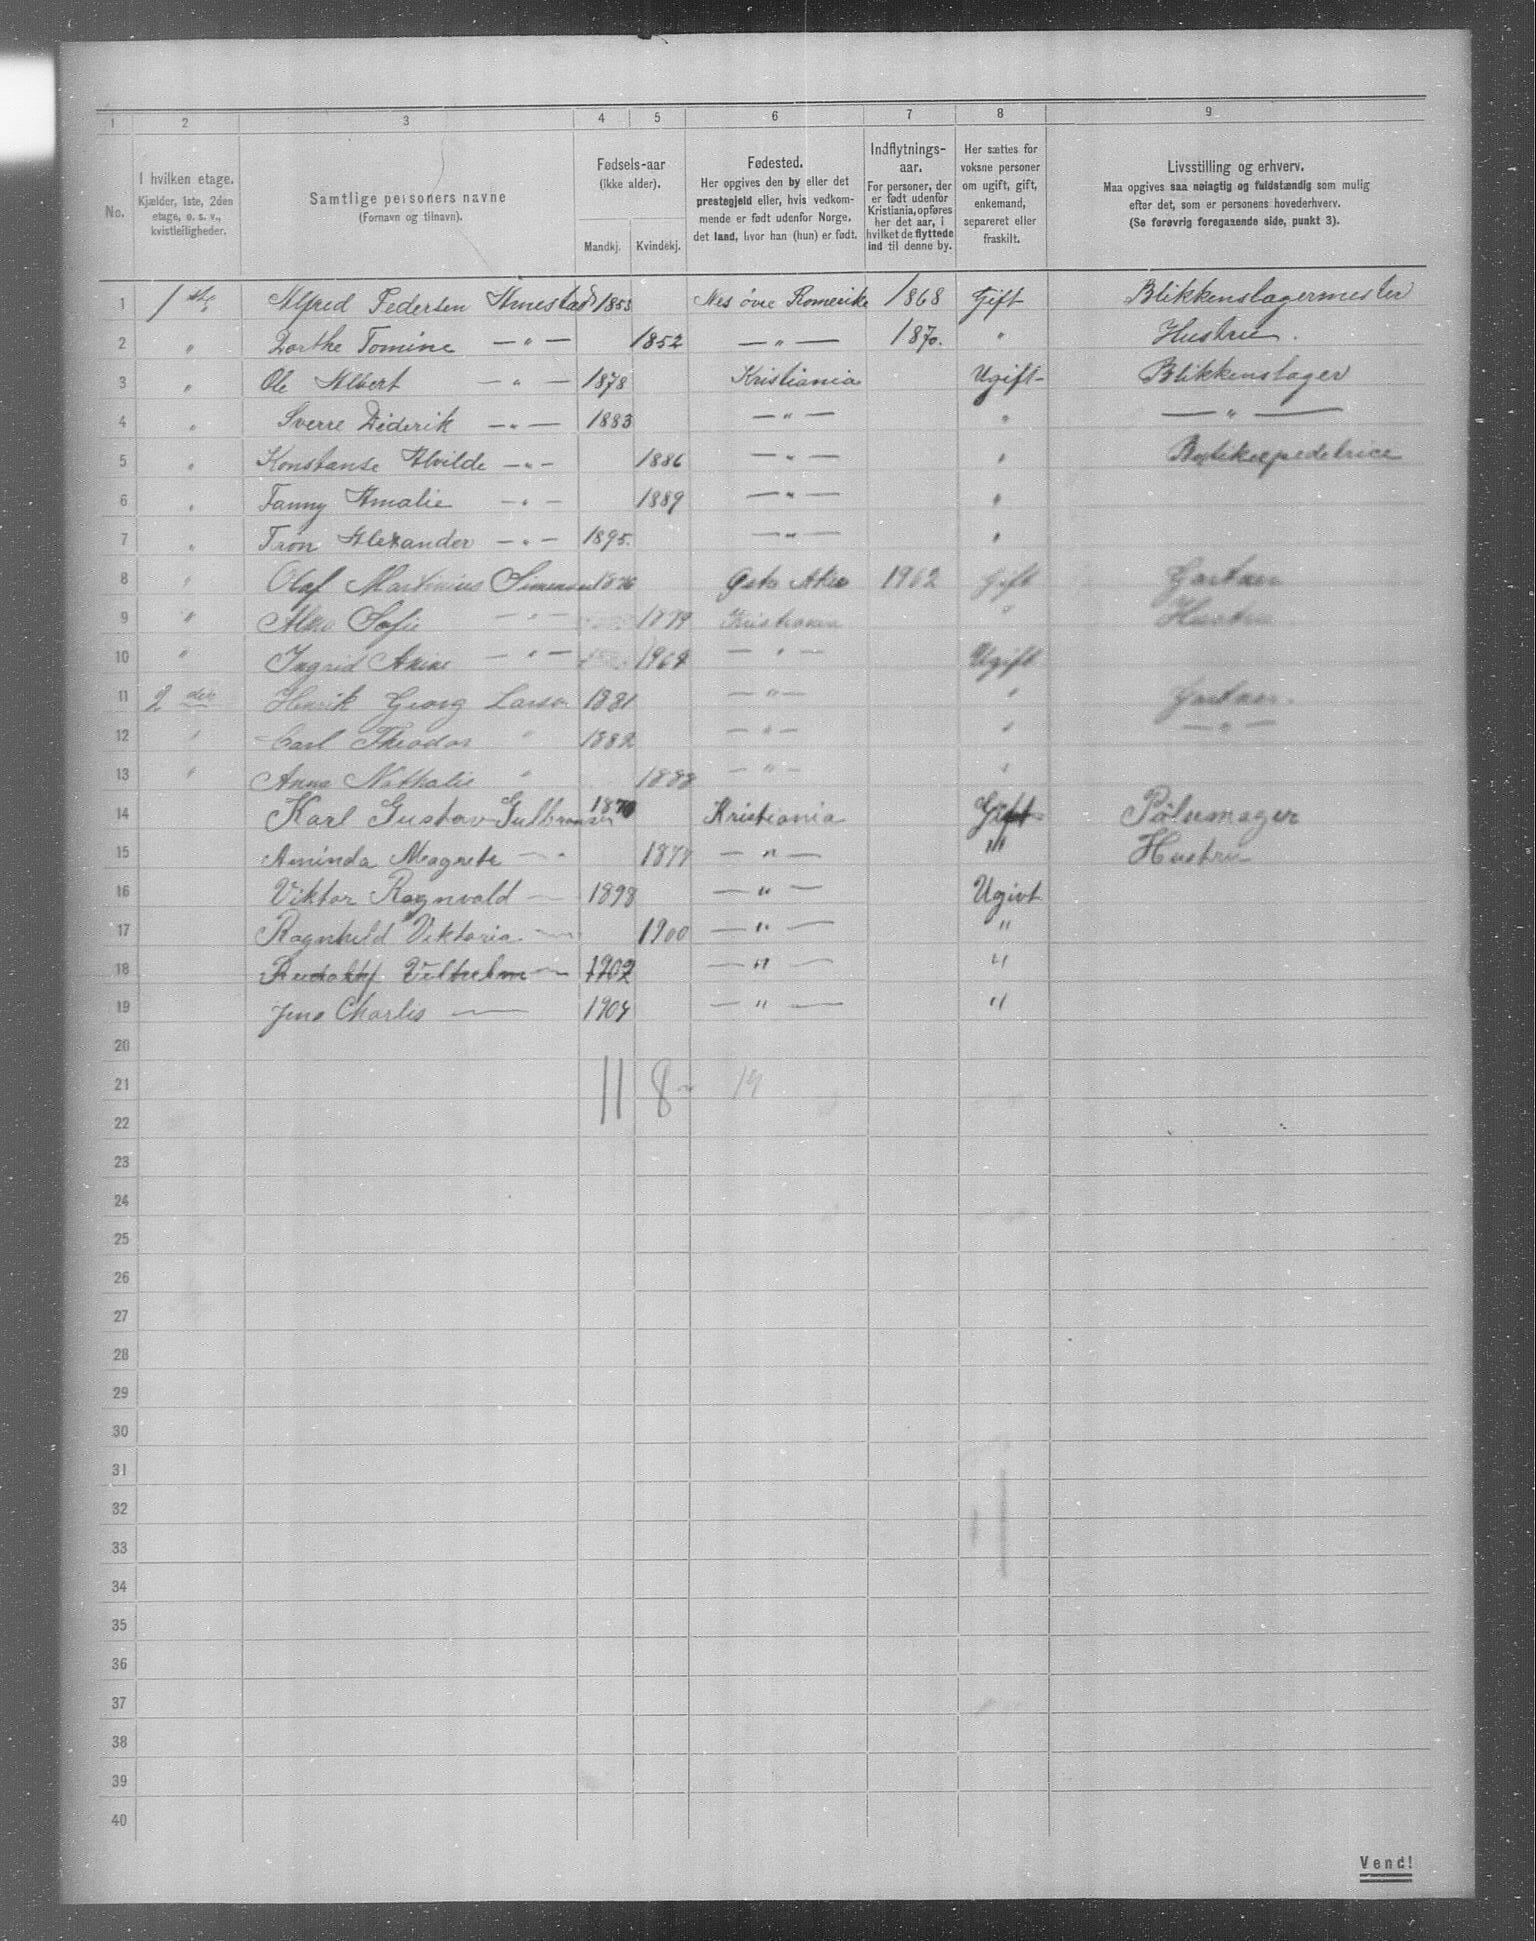 1 2 3 4 5 6 7 8 9
No. I hvilken etage. Kjælder, 1ste, 2den etage, o. s. v., kvistleiligheder. Samtlige personers navne (Fornavn og tilnavn). Fødsels-aar (ikke alder). Mandkj. Kvindekj. Fødested. Her opgives den by eller det prestegjeld eller, hvis vedkommende er født udenfor Norge, det land, hvor han (hun) er født. Indflytnings-aar. For personer, der er født udenfor Kristiania, opføres her det aar, i hvilket de flyttede ind til denne by. Her sættes for voksne personer om ugift, gift, enkemand, separeret eller fraskilt. Livsstilling og erhverv. Maa opgives saa nøiagtig og fuldstændig som mulig efter det, som er personens hovederhverv. (Se forøvrig foregaaende side, punkt 3).
1 1ste Alfred Pedersen 1853 Nes øvre Romerike 1868 Gift Blikkenslagermester
2 " Dorthe Tomine — " — 1852 — " — 1870. " Hustru.
3 " Ole Albert — " — 1878 Kristiania Ugift Blikkenslager
4 " Sverre Diderik — " — 1883 — " — " — " —
5 " Konstanse Alvilde — " — 1886 — " — "
6 " Fanny Amalie — " — 1889 — " — "
7 " Tron Alexander — " — 1895. — " — "
8 " Olaf Martinius Simensen 1876 Østr Aker 1902 Gift Gartner
9 " Sofie — " — 1879 Kristiania " Hustru
10 " Ingrid — " — — " — Ugift
11 2den Henrik Georg Larsen 1881 — " — " Gartner.
12 " Carl Theodor " 1882 — " — " — " —
13 " Anna Nathalie " 1888 — " — "
14 Karl Gustav Gulbransen Kristiania Gift Pølsemager
15 Aminda Magrete — " 1877 — " — "' Hustru
16 Viktor Ragnvald — 1898 — " — Ugivt
17 Ragnhild Viktoria — 1900 — " — "
18 Rudolf Vilhelm — 1902 — " — "
19 Charlis — 1904 — " — "
20
21 11 8 19
22
23
24
25
26
27
28
29
30
31
32
33
34
35
36
37
38
39
40
Vend!